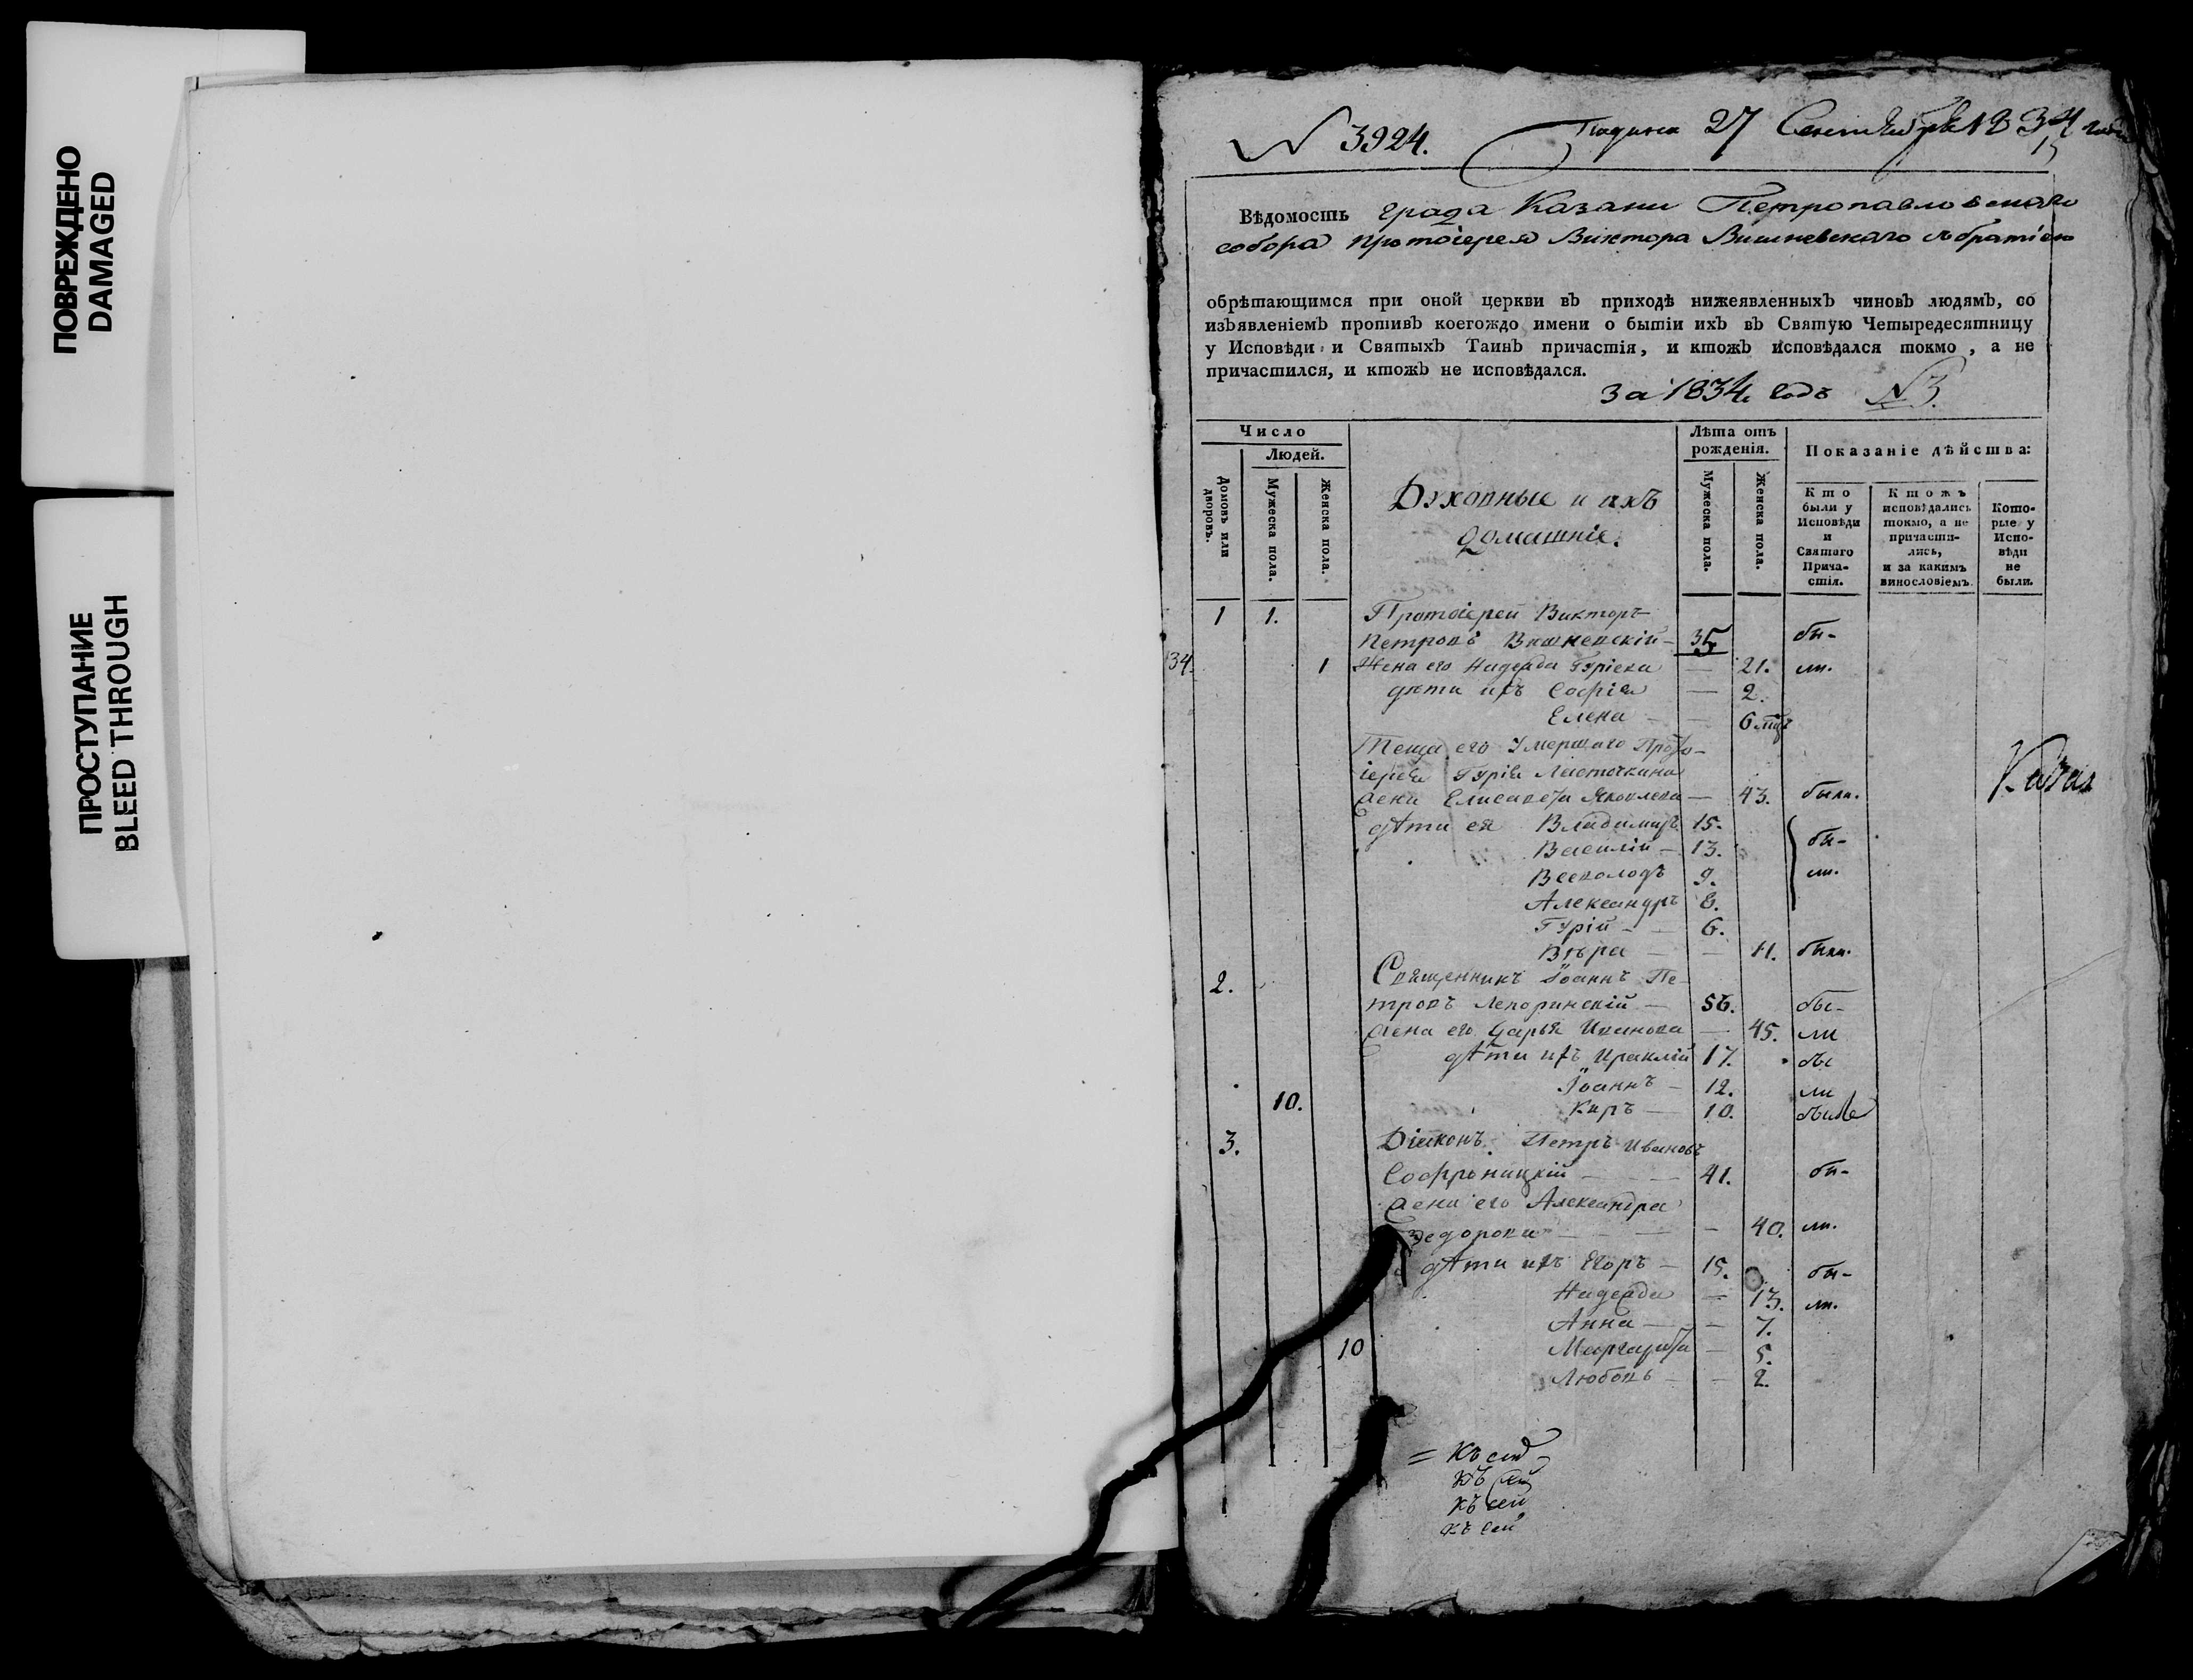 ПОВРЕЖДЕНО
DAMAGED
ПРОСТУПАНИЕ
BLEED THROUGH
№ 3924. Подана 27 Сентября 1834 года
Вѣдомость града Казани Петропавловскаго
собора протоіерея Виктора Вишневскаго съ братіею
обрѣтающимся при оной церкви въ приходѣ нижеявленныхъ чиновъ людямъ, со
изъявленіемъ противъ коегождо имени о бытіи ихъ въ Святую Четыредесятницу
у Исповѣди и Святыхъ Таинъ причастія, и ктожъ исповѣдался токмо, а не
причастился, и ктожъ не исповѣдался.
За 1834 годъ №3.
Число
Людей.
Домовъ или дворовъ.
Мужеска пола.
Женска пола.
Духовные и ихъ
домашніе.
Лѣта отъ
рожденія.
Мужеска пола.
Женска пола.
Показаніе дѣйства:
Кто
были у
Исповѣди
и
Святаго
Прича-
стія.
Ктожъ
исповѣдались
токмо, а не
причасти-
лись,
и за какимъ
винословіемъ.
Кото-
рые у
Испо-
вѣди
не
были.
1 1. Протоіерей Викторъ
Петровъ Вишневскій - 35 бы-
34. 1 Жена его Надежда Гуріева — 21. ли.
дѣти ихъ Софія — 2.
Елена — 6 мцъ
Теща его умершаго Прото-
іерея Гурія Ласточкина
жена Елисавета Яковлева — 43. были.
дѣти ея Владимиръ 15.
Василій — 13. бы-
Всеволодъ 9. ли.
Александръ 8.
Гурій - 6.
Вѣра — 11. были.
2. Священникъ Іоаннъ Пе-
тровъ Лепоринскій — 56. бы-
жена его Дарья Иванова — 45. ли
дѣти ихъ Ираклій 17. бы
Іоаннъ — 12. ли
10. Киръ — 10. были
3. Діаконъ Петръ Ивановъ
Софроницкій — 41. бы-
жена его Александра
Федорова — 40. ли.
дѣти ихъ Егоръ — 15. бы-
Надежда — 13. ли.
Анна — 7.
10 Маргарита — 5.
Любовь — 2.
Казан
= Къ сей
Къ сей
Къ сей
Къ сей